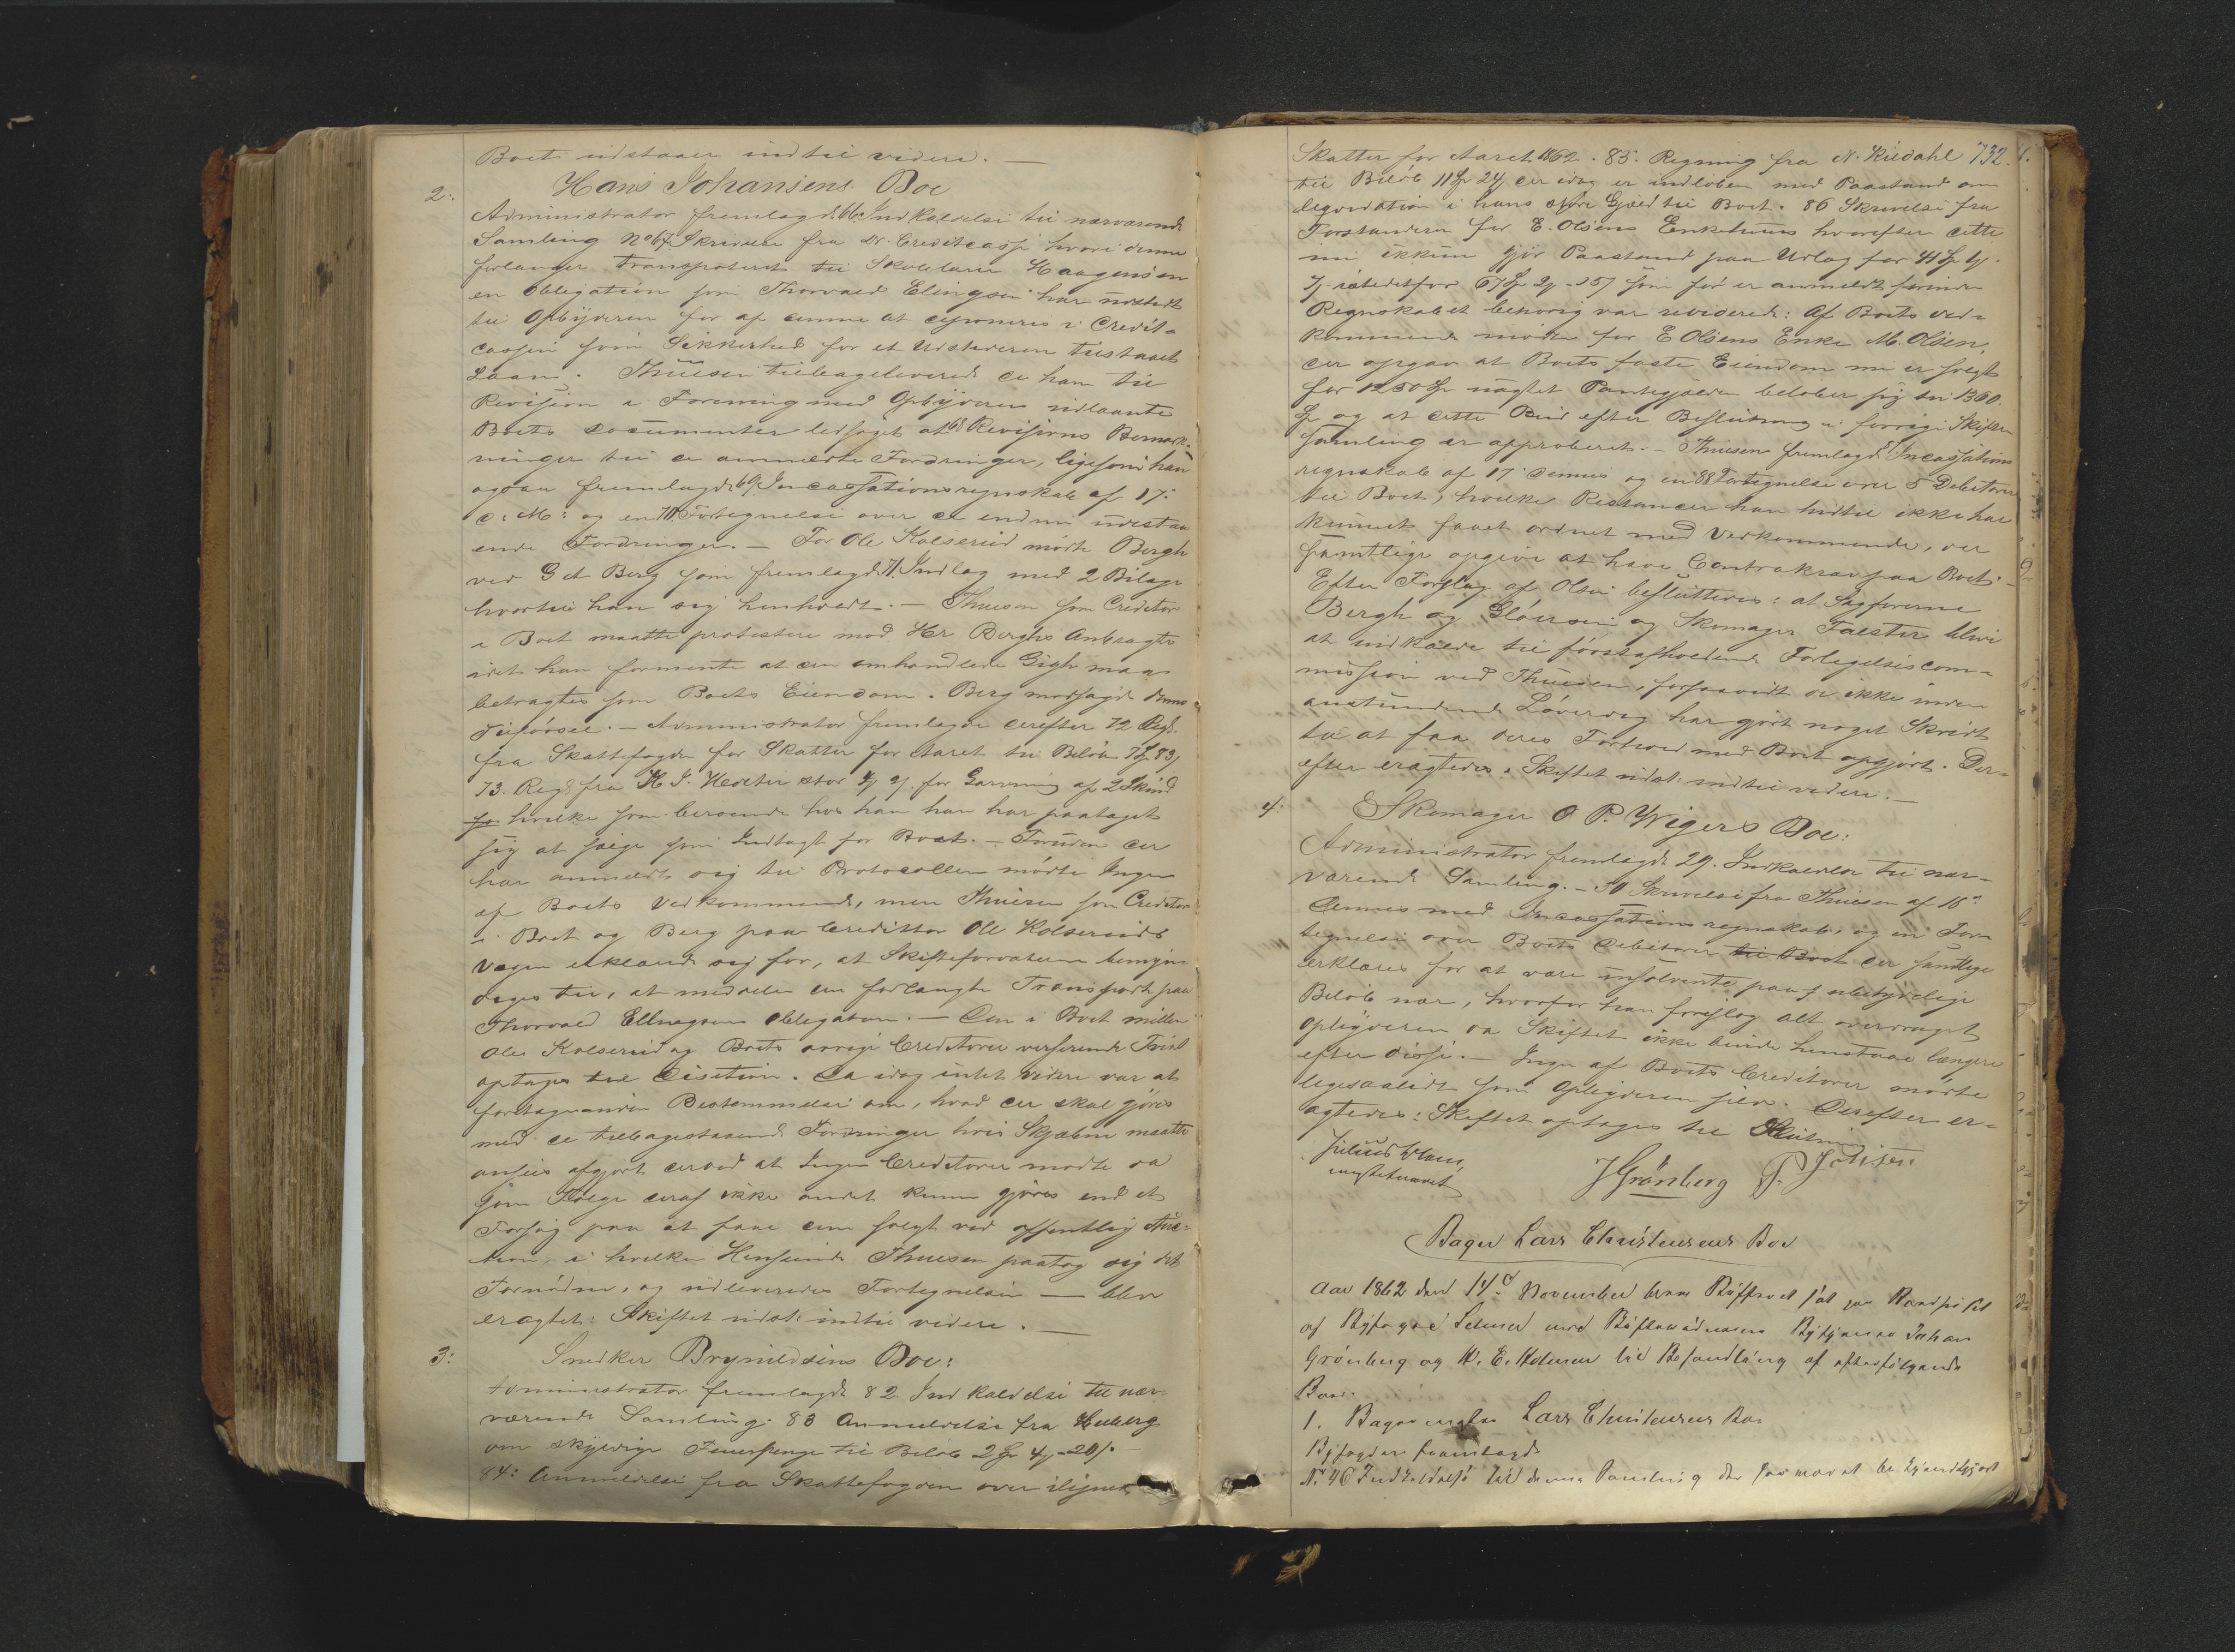 Boet udstaaer indtil videre. —
2: Hans Johansens Boe
Administrator fremlagde 66. Indkaldelse til nærværende
Samling No 67. Skrivelse fra Dr. Creditcasse hvori denne
forlanger transporteret til Skolelærer Haagensen
en Obligation som Thorvald Elingsen har udstedt
til Opbyderen for af denne at deponeres i Credit-
cassen som Sikkerhed for et Udstederen tilstaaet
Laan. Thuesen tilbageleverede de ham til
Revision i Forening med Opbyderen udlaante
Boets Documenter ledsaget af 68 Revisions Bemærk-
ninger til de anmeldte Fordringer, ligesom han
ogsaa fremlagde 69. Incassationsregnskab af 17:
d: M: og en 70. Fortegnelse over de endnu udestaa-
ende Fordringer. — For Ole Kolserud mødte Bergh
ved G A Berg som fremlagde 71. Indlæg med 2 Bilage
hvortil han sig henholdt. — Thuesen som Creditor
i Boet maatte protestere mod Hr Berghs Anbragte
idet han formente at den omhandlede Gigh maa
betragtes som Boets Eiendom. Berg modsagde denne
Tilførsel. — Administrator fremlagde derefter 72 Regn.
fra Skattefogden for Skatter for Aaret til Beløb
73. Regn fra H J. for Garvning af 2 Skind
for hvilke som beroende hos ham han har paataget
sig at sælge som Indtægt for Boet. — Foruden der
har anmeldt sig til Protocollen mødte Ingen
af Boets Vedkommende, men Thuesen som Creditor
i Boet og Berg paa Creditor Ole Kolseruds
Vegne erklærede sig for, at Skifteforvalteren bemyn-
diges til, at meddele den forlangte Transport paa
Thorvald Ellingsens Obligation. — Den i Boet mellem
Ole Kolserud og Boets øvrige Creditorer verserende Tvist
optages til Decision. Da idag intet videre var at
foretage uden Bestemmelse om, hvad der skal gjøres
med de tilbagestaaende Fordringer hvis Skjæbne maatte
ansees afgjort derved at Ingen Creditorer mødte da
som Følge deraf ikke andet kunne gjøres end et
Forsøg paa at faae dem solgt ved offentlig Auc-
tion, i hvilken Henseende Thuesen paatog sig det
Fornødne, og udleveredes Fortegnelsen — blev
eragtet: Skiftet udst. indtil videre. —
3: Snedker Brynildsens Boe:
Administrator fremlagde 82 Indkaldelse til nær-
værende Samling. 83 Anmeldelse fra Huberg
om skyldige Tenerpenge til Beløb
84: Anmeldelse fra Skattefogden over ilignet
732.
Skatter for Aaret 1862. 85: Regning fra N. Kildahl
til Beløb der idag er indløben med Paastand om
liqvidation i hans Gjæld til Boet. 86 Skrivelse fra
Forstanderen for E. Olsens Enkehuus hvorefter dette
nu ikkun gjør Paastand paa Udlæg for
istedetfor som før er anmeldt forinden
Regnskabet behørig var revideret: Af Boets ved-
kommende mødte for E Olsens Enke M. Olsen,
der opgav at Boets faste Eiendom nu er solgt
for 1250 uagtet Pantegjælden beløber sig til 1300
og at dette Bud efter Beslutning i forrige Skifte-
samling er approberet. — Thuesen fremlagde 87 Incassations
regnskab af 17 dennes og en 88 Fortegnelse over 5 Debitorer
til Boet, hvilke Restancer han hidtil ikke har
kunnet faaet ordnet med Vedkommende, der
samtlige opgive at have Contrakrav paa Boet. —
Efter Forslag af Olsen besluttedes: at Sagførerne
Bergh og Gløersen og Skomager Falster blive
at indkalde til førstafholdende Forligelsescom-
mission ved Thuesen, forsaavidt de ikke inden
anstundende Løverdag har gjort noget Skridt
til at faa deres Forhold med Boet opgjort. Der-
efter eragtedes: Skiftet udst. indtil videre. —
4: Skomager O P. Wigers Boe:
Administrator fremlagde 29. Indkaldelse til nær-
værende Samling. — 30 Skrivelse fra Thuesen af 16:
dennes med Incassationsregnskab, og en For-
tegnelse over Boets Debitorer til Boet der samtlige
erklæres for at være insolvente paa ubetydelige
Beløb nær, hvorfor han foreslog alt overdraget
Opbyderen da Skiftet ikke burde henstaae længere
efter disse. — Ingen af Boets Creditorer mødte
ligesaalidt som Opbyderen selv. Derefter er-
agtedes: Skiftet optages til Slutning.
Julius
constitueret
J Grönberg P. Johnsen.
Bager Lars Christensens Boe
Aar 1862 den November blev Bytingsret sat paa Raadhuset
af Byfoged Selmer med Johan
Grönberg og H. E. Holmen til Behandling af efterfølgende
Boer.
1. Bagermester Lars Christensens Boe
Byfogden fremlagde
No 46 Indkaldelse til denne Samling der bekjendtgjort